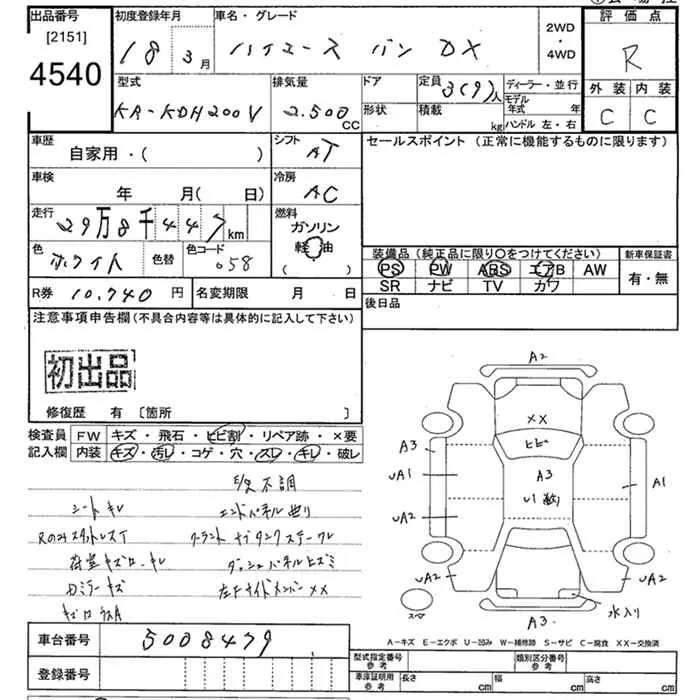 出品番号 初度登録年月 車名・グレード 2WD・4WD 評価点
[2151]
4540
18年 3月 ハイエース バン DX R
外装 内装
C C
型式 排気量 ドア 定員 3(9)人 ディーラー・並行
KR-KDH200V 2.500 CC 形状 積載 kg モデル年式 年
ハンドル 左・右
車歴 シフト セールスポイント (正常に機能するものに限ります)
自家用・( ) AT
車検 冷房
年 月(日) AC
走行 燃料
29万8千447km ガソリン
軽油
( )
色 ホワイト 色替 色コード 058
装備品 (純正品に限り〇をつけてください) 新車保証書
PS PW ABS エアB AW 有・無
SR ナビ TV カワ
R券 10,740円 名変期限 月 日
後日品
注意事項申告欄(不具合内容等は具体的に記入して下さい)
初出品
修復歴 有 [箇所 ]
検査員 FW キズ・飛石・ヒビ割・リペア跡・×要
記入欄 内装 キズ・汚レ・コゲ・穴・スレ・キレ・破レ
不調
シートキレ エンドパネル曲り
ダッシュパネルヒズミ
Dミラーキズ 左Fサイドメンバー××
A2
××
ヒビ
A3 A3
UA1 A1
UA2
UA2 UA2
スペア 水入り
A3
A-キズ E-エクボ U-凹み W-補修跡 S-サビ C-腐食 XX-交換済
車台番号 5008479
登録番号
型式指定番号 参考 類別区分番号 参考
車庫証明用 参考 長さ cm 幅 cm 高さ cm